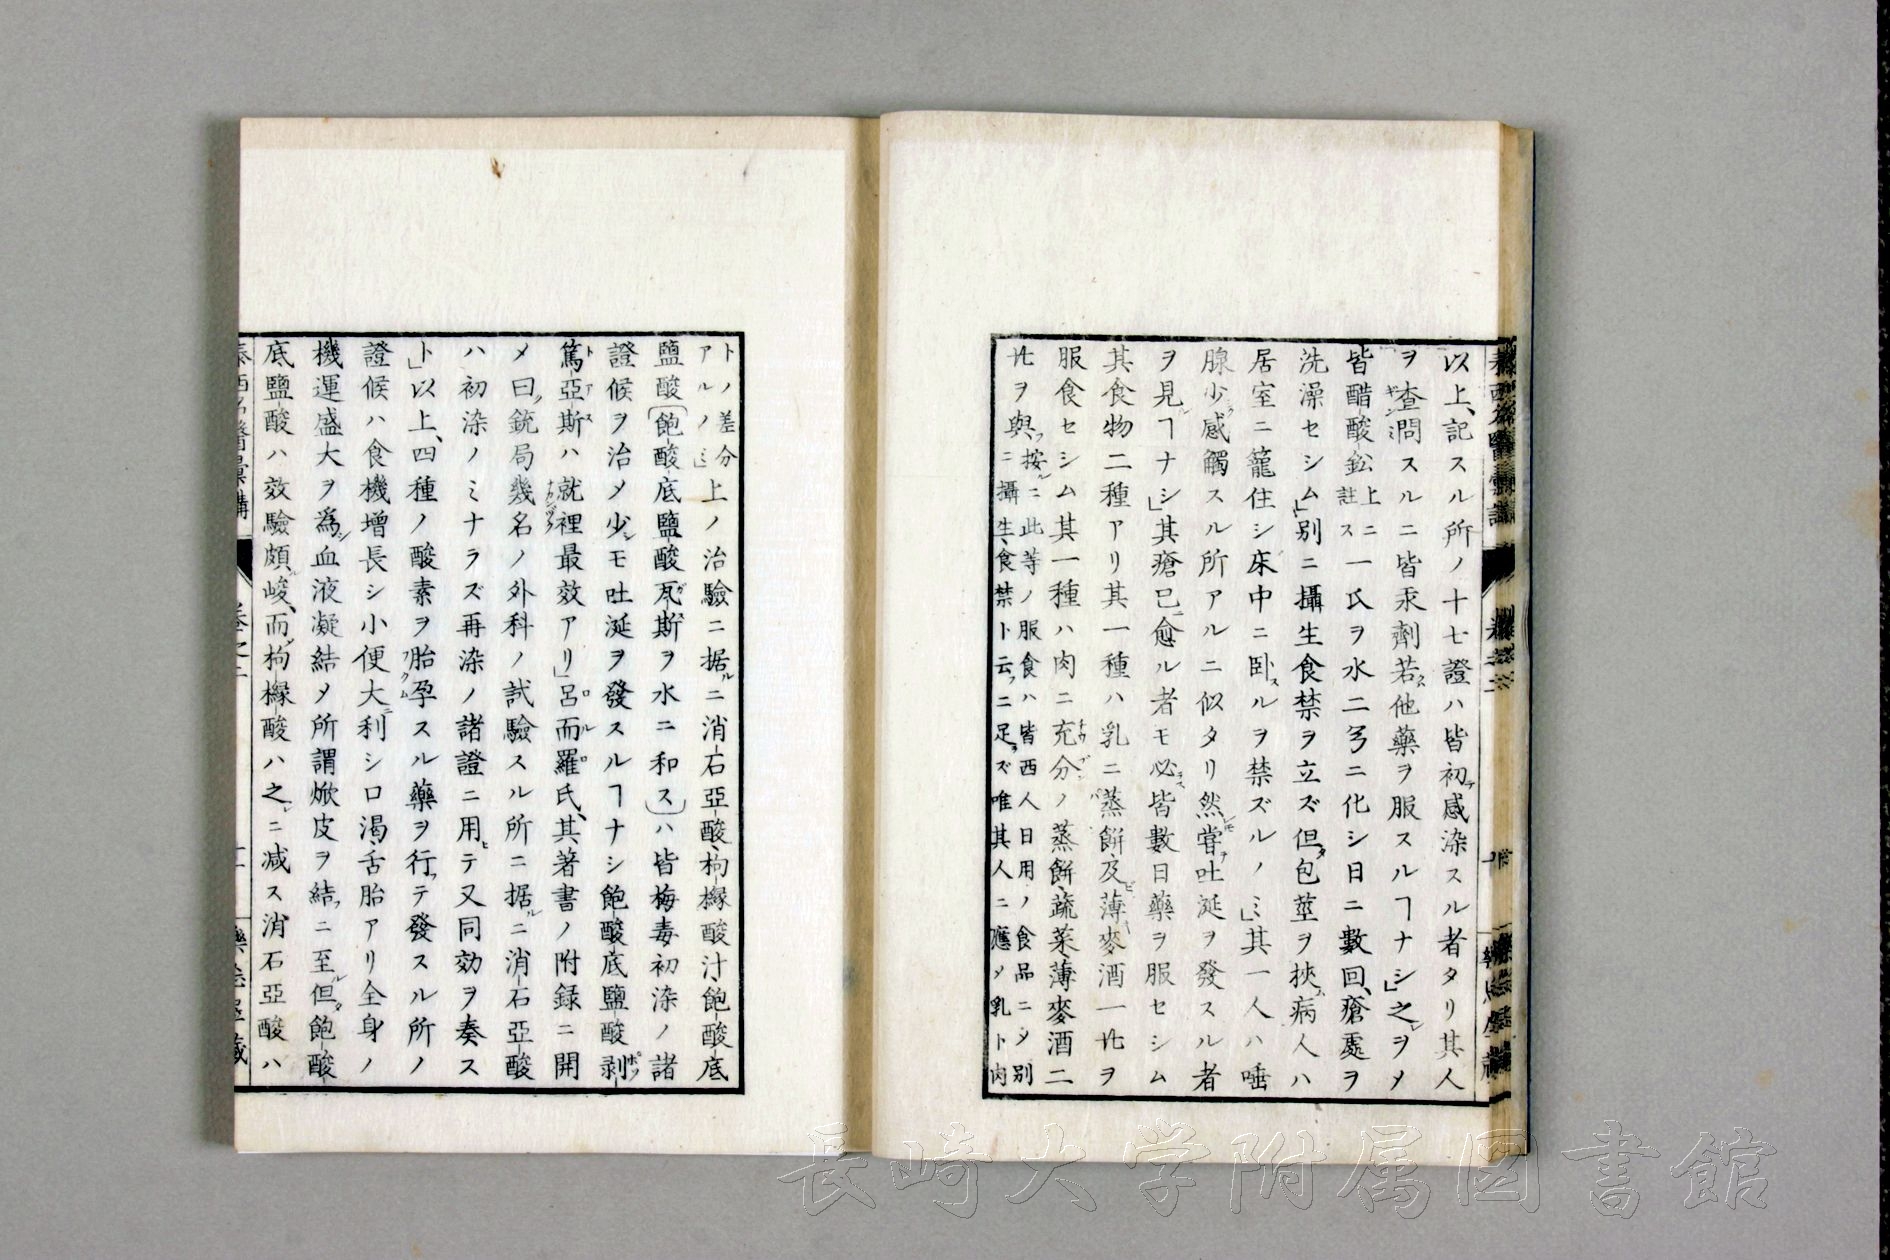 以上、記スル所ノ十七證ハ皆初テ感染スル者タリ其人
ヲ査問スルニ皆汞劑若クハ他藥ヲ服スルヿナシ」之レヲメ
皆醋酸鉛上ニ註ス一氏ヲ水二弓ニ化シ日ニ數回、瘡處ヲ
洗澡セシム」別ニ攝生食禁ヲ立ズ但タ包莖ヲ挾ム病人ハ
居室ニ籠住シ床中ニ臥スルヲ禁ズルノミ」其一人ハ唾
腺少シク感觸スル所アルニ似タリ然レモ嘗テ吐涎ヲ發スル者
ヲ見ルヿナシ」其瘡已ニ愈ル者モ必ラス皆數日藥ヲ服セシム
其食物二種アリ其一種ハ乳ニ蒸餅及ビ薄麥酒一㔟ヲ
服食セシム其一種ハ肉ニ充分ノ蒸餅、蔬菜、薄麥酒二
㔟ヲ與フ按ルニ此等ノ服食ハ皆西人日用ノ食品ニメ別ニ攝生、食禁ト云フニ足ラズ唯其人ニ應メ乳ト肉
トノ差分アルノミ」上ノ治驗ニ据ルニ消石亞酸、枸櫞酸汁飽酸底
鹽酸〔飽酸底鹽酸瓦斯ヲ水ニ和ス〕ハ皆梅毒初染ノ諸
證候ヲ治メ少シモ吐涎ヲ發スルヿナシ飽酸底鹽酸剥
篤亞斯ハ就裡最效アリ」呂而羅氏、其著書ノ附録ニ開
メ曰ク銃局幾名ノ外科ノ試驗スル所ニ据ルニ消石亞酸
ハ初染ノミナラズ再染ノ諸證ニ用ヒテ又同効ヲ奏ス
ト」以上、四種ノ酸素ヲ胎孕スル藥ヲ行フテ發スル所ノ
證候ハ食機增長シ小便大ニ利シ口渴、舌胎アリ全身ノ
機運盛大ヲ爲シ血液凝結メ所謂焮皮ヲ結フニ至ル但タ飽酸
底鹽酸ハ效驗頗ル峻、而メ枸櫞酸ハ之レニ減ス消石亞酸ハ
泰西名醫彙講
長崎大学附属図書館